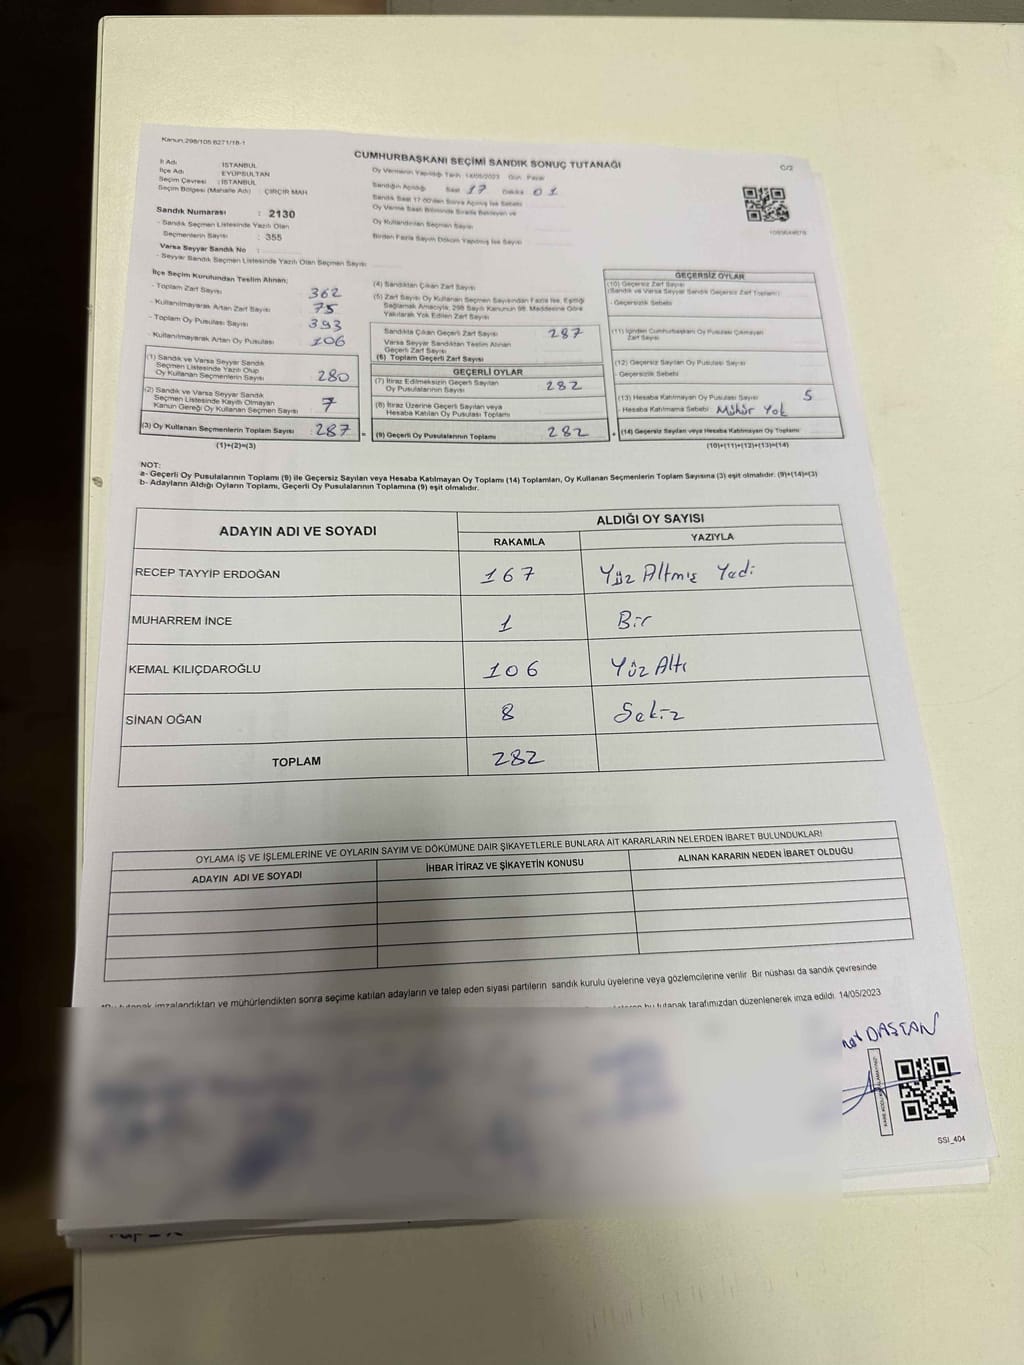 Kanun:298/105 B271/18-1
CUMHURBAŞKANI SEÇİMİ SANDIK SONUÇ TUTANAĞI
C/2
İl Adı : İSTANBUL
İlçe Adı : EYÜPSULTAN
Seçim Çevresi : İSTANBUL
Seçim Bölgesi (Mahalle Adı) : ÇIRÇIR MAH
Sandık Numarası : 2130
- Sandık Seçmen Listesinde Yazılı Olan
Seçmenlerin Sayısı : 355
Varsa Seyyar Sandık No :
- Seyyar Sandık Seçmen Listesinde Yazılı Olan Seçmen Sayısı
Oy Vermenin Yapıldığı Tarih 14/05/2023 Gün Pazar
Sandığın Açıldığı Saat 17 Dakika 01
Sandık Saat 17:00'den Sonra Açılmış İse Sebebi
Oy Verme Saati Bitiminde Sırada Bekleyen ve
Oy Kullandırılan Seçmen Sayısı
Birden Fazla Sayım Döküm Yapılmış İse Sayısı
İlçe Seçim Kurulundan Teslim Alınan;
- Toplam Zarf Sayısı 362
- Kullanılmayarak Artan Zarf Sayısı 75
- Toplam Oy Pusulası Sayısı 393
- Kullanılmayarak Artan Oy Pusulası 106
(1) Sandık ve Varsa Seyyar Sandık
Seçmen Listesinde Yazılı Olup
Oy Kullanan Seçmenlerin Sayısı 280
(2) Sandık ve Varsa Seyyar Sandık
Seçmen Listesinde Kayıtlı Olmayan
Kanun Gereği Oy Kullanan Seçmen Sayısı 7
(3) Oy Kullanan Seçmenlerin Toplam Sayısı 287
(1)+(2)=(3)
(4) Sandıktan Çıkan Zarf Sayısı
(5) Zarf Sayısı Oy Kullanan Seçmen Sayısından Fazla İse, Eşitliği
Sağlamak Amacıyla, 298 Sayılı Kanunun 98. Maddesine Göre
Yakılarak Yok Edilen Zarf Sayısı
Sandıkta Çıkan Geçerli Zarf Sayısı 287
Varsa Seyyar Sandıktan Teslim Alınan
Geçerli Zarf Sayısı
(6) Toplam Geçerli Zarf Sayısı
GEÇERLİ OYLAR
(7) İtiraz Edilmeksizin Geçerli Sayılan
Oy Pusulalarının Sayısı 282
(8) İtiraz Üzerine Geçerli Sayılan veya
Hesaba Katılan Oy Pusulası Toplamı
= (9) Geçerli Oy Pusulalarının Toplamı 282
GEÇERSİZ OYLAR
(10) Geçersiz Zarf Sayısı
(Sandık ve Varsa Seyyar Sandık Geçersiz Zarf Toplamı)
- Geçersizlik Sebebi
(11) İçinden Cumhurbaşkanı Oy Pusulası Çıkmayan
Zarf Sayısı
(12) Geçersiz Sayılan Oy Pusulası Sayısı
- Geçersizlik Sebebi
(13) Hesaba Katılmayan Oy Pusulası Sayısı 5
- Hesaba Katılmama Sebebi Mühür Yok
+ (14) Geçersiz Sayılan veya Hesaba Katılmayan Oy Toplamı
(10)+(11)+(12)+(13)=(14)
NOT:
a- Geçerli Oy Pusulalarının Toplamı (9) ile Geçersiz Sayılan veya Hesaba Katılmayan Oy Toplamı (14) Toplamları, Oy Kullanan Seçmenlerin Toplam Sayısına (3) eşit olmalıdır. (9)+(14)=(3)
b- Adayların Aldığı Oyların Toplamı, Geçerli Oy Pusulalarının Toplamına (9) eşit olmalıdır.
ADAYIN ADI VE SOYADI
ALDIĞI OY SAYISI
RAKAMLA YAZIYLA
RECEP TAYYİP ERDOĞAN 167 Yüz Altmış Yedi
MUHARREM İNCE 1 Bir
KEMAL KILIÇDAROĞLU 106 Yüz Altı
SİNAN OĞAN 8 Sekiz
TOPLAM 282
OYLAMA İŞ VE İŞLEMLERİNE VE OYLARIN SAYIM VE DÖKÜMÜNE DAİR ŞİKAYETLERLE BUNLARA AİT KARARLARIN NELERDEN İBARET BULUNDUKLARI
ADAYIN ADI VE SOYADI İHBAR İTİRAZ VE ŞİKAYETİN KONUSU ALINAN KARARIN NEDEN İBARET OLDUĞU
tutanak imzalandıktan ve mühürlendikten sonra seçime katılan adayların ve talep eden siyasi partilerin sandık kurulu üyelerine veya gözlemcilerine verilir. Bir nüshası da sandık çevresinde
bu tutanak tarafımızdan düzenlenerek imza edildi. 14/05/2023
DAŞTAN
SSI_404